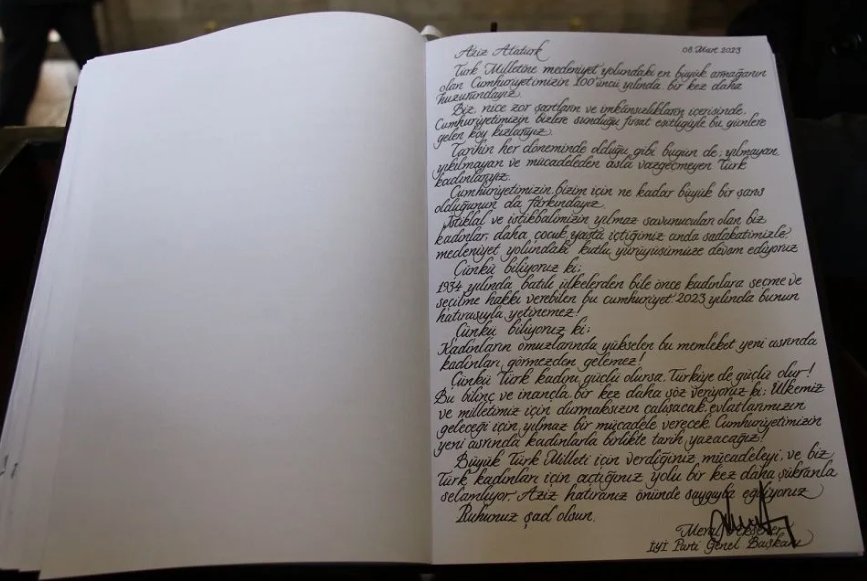 Aziz Atatürk 08 Mart 2023
Türk Milletine medeniyet yolundaki en büyük armağanın
olan Cumhuriyetimizin 100'üncü yılında bir kez daha
huzurundayız.
Biz nice zor şartların ve imkânsızlıkların içerisinde,
Cumhuriyetimizin bizlere sunduğu fırsat eşitliğiyle bu günlere
gelen köy kızlarıyız.
Tarihin her döneminde olduğu gibi bugün de; yılmayan,
yıkılmayan ve mücadeleden asla vazgeçmeyen Türk
kadınlarıyız.
Cumhuriyetimizin bizim için ne kadar büyük bir şans
olduğunun da farkındayız.
İstiklal ve istikbalimizin yılmaz savunucuları olan biz
kadınlar, daha çocuk yaşta içtiğimiz anda sadakatimizle,
medeniyet yolundaki kutlu yürüyüşümüze devam ediyoruz
Çünkü biliyoruz ki;
1934 yılında batılı ülkelerden bile önce kadınlara seçme ve
seçilme hakkı verebilen bu cumhuriyet 2023 yılında bunun
hatırasıyla yetinemez!
Çünkü biliyoruz ki;
Kadınların omuzlarında yükselen bu memleket yeni asrında
kadınları görmezden gelemez!
Çünkü Türk kadını güçlü olursa, Türkiye de güçlü olur!
Bu bilinç ve inançla bir kez daha söz veriyoruz ki; Ülkemiz
ve milletimiz için durmaksızın çalışacak, evlatlarımızın
geleceği için yılmaz bir mücadele verecek, Cumhuriyetimizin
yeni asrında kadınlarla birlikte tarih yazacağız!
Büyük Türk Milleti için verdiğiniz mücadeleyi, ve biz
Türk kadınları için açtığınız yolu bir kez daha şükranla
selamlıyor, Aziz hatıranız önünde saygıyla eğiliyoruz
Ruhunuz şad olsun.
Meral Akşener
İYİ Parti Genel Başkanı